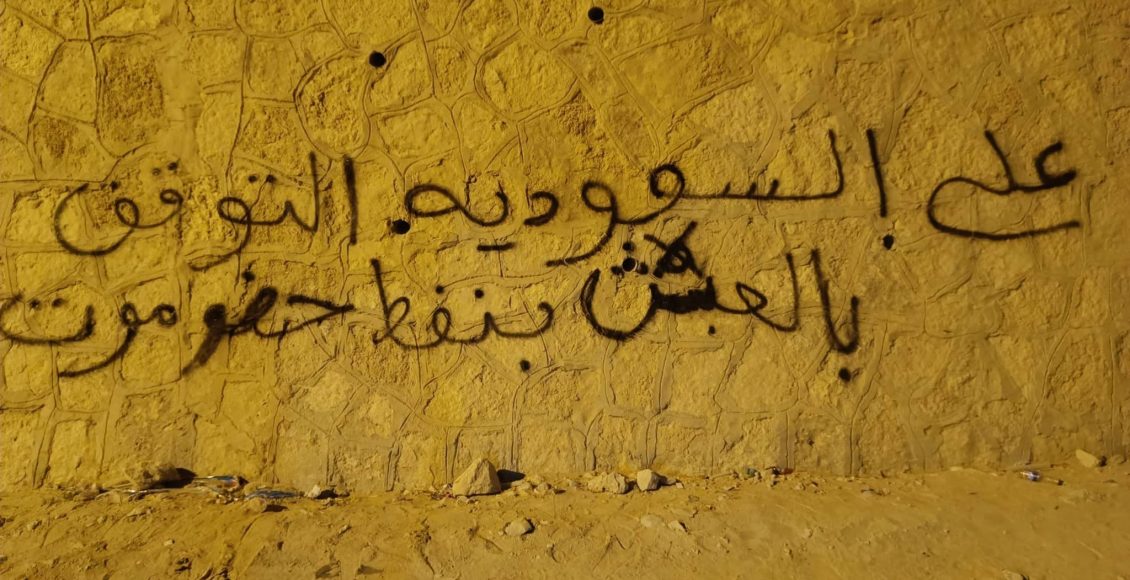 على السعوديه التوقف
بالعبث بنفط حضرموت